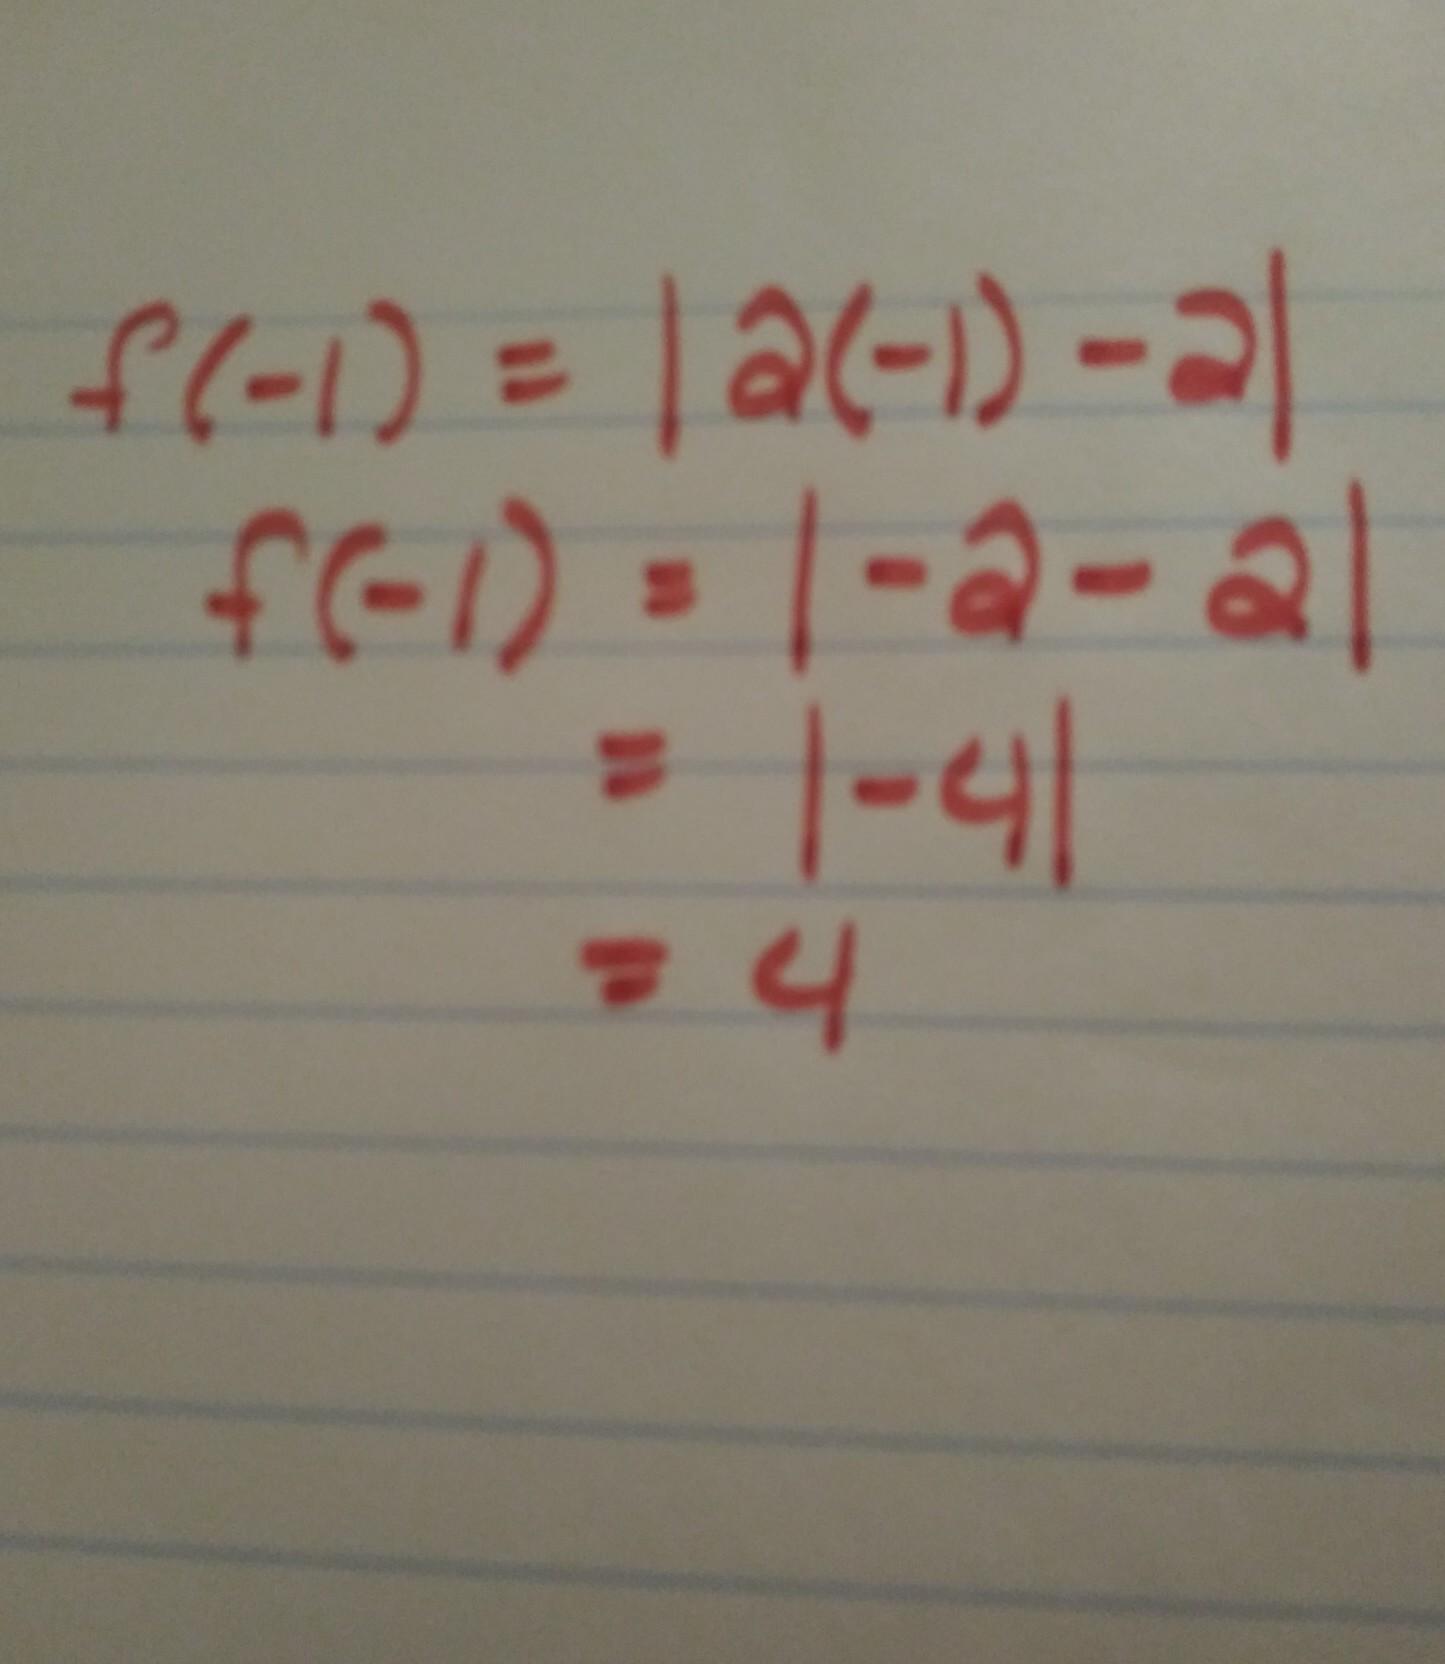 f(-1) = |2(-1) - 2|
f(-1) = |-2 - 2|
= |-4|
= 4